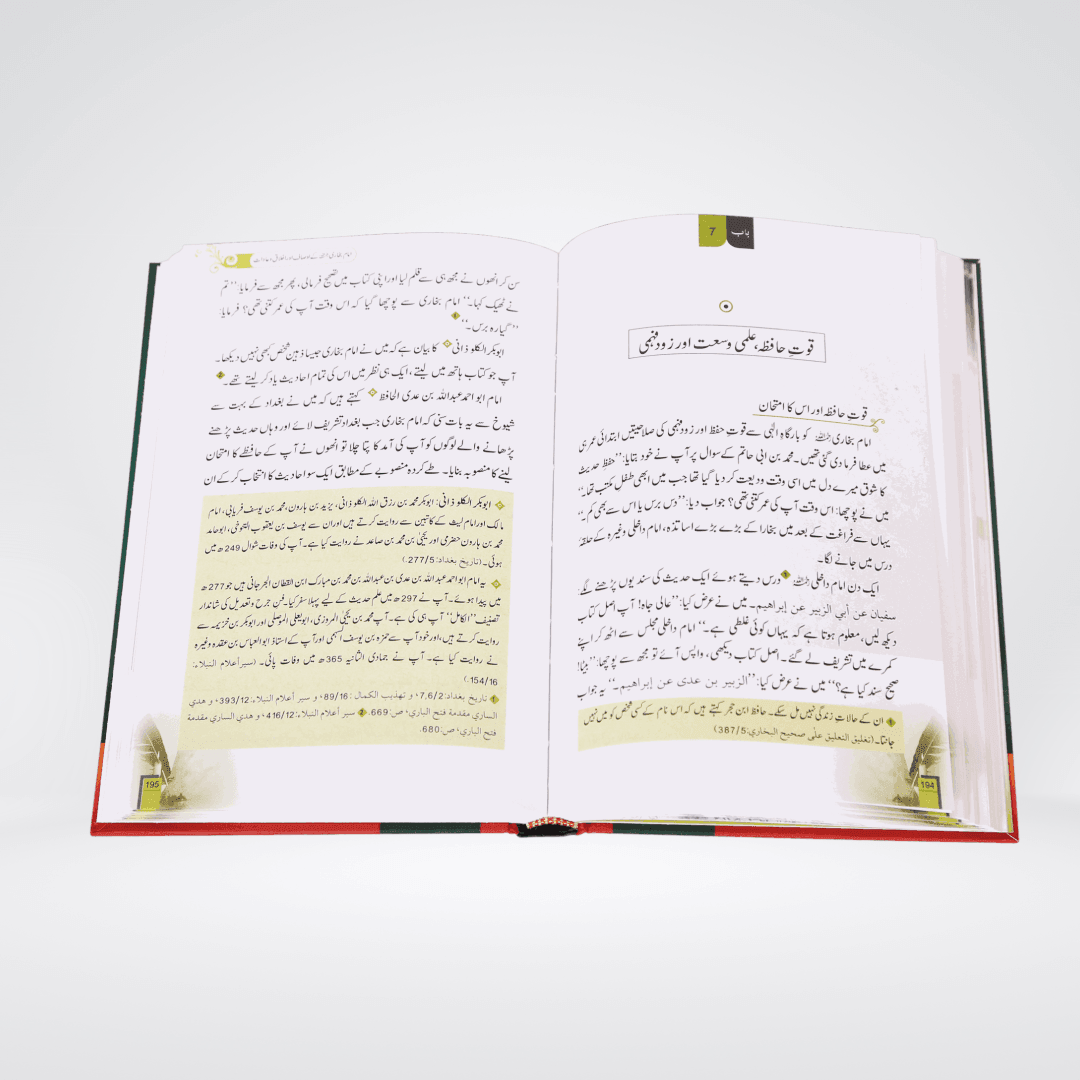 باب 7
قوتِ حافظہ، علمی وسعت اور زود فہمی
قوت حافظہ اور اس کا امتحان
امام بخاری رحمہ اللہ کو بارگاہِ الٰہی سے قوتِ حفظ اور زود فہمی کی صلاحیتیں ابتدائی عمر ہی
میں عطا فرما دی گئی تھیں۔ محمد بن ابی حاتم کے سوال پر آپ نے خود بتایا: ’’حفظ حدیث
کا شوق میرے دل میں اسی وقت ودیعت کر دیا گیا تھا جب میں ابھی طفلِ مکتب تھا۔‘‘
میں نے پوچھا: اس وقت آپ کی عمر کتنی تھی؟ جواب دیا: ’’دس برس یا اس سے بھی کم۔‘‘
یہاں سے فراغت کے بعد میں بخارا کے بڑے بڑے اساتذہ، امام داخلی وغیرہ کے حلقۂ
درس میں جانے لگا۔
ایک دن امام داخلی رحمہ اللہ 1 درس دیتے ہوئے ایک حدیث کی سند یوں پڑھنے لگے:
سفیان عن أبي الزبير عن إبراهيم۔ میں نے عرض کیا: ’’عالی جاہ! آپ اصل کتاب
دیکھ لیں، معلوم ہوتا ہے کہ یہاں کوئی غلطی ہے۔‘‘ امام داخلی مجلس سے اٹھ کر اپنے
کمرے میں تشریف لے گئے۔ اصل کتاب دیکھی، واپس آئے تو مجھ سے پوچھا: ’’بیٹا!
صحیح سند کیا ہے؟‘‘ میں نے عرض کیا: ’’الزبير بن عدی عن إبراهيم۔‘‘ یہ جواب
1 ان کے حالاتِ زندگی نہیں مل سکے۔ حافظ ابن حجر کہتے ہیں کہ اس نام کے کسی شخص کو میں نہیں
جانتا۔ (تغليق التعليق على صحيح البخاري: 387/5)
194
سن کر انھوں نے مجھ ہی سے قلم لیا اور اپنی کتاب میں تصحیح فرمالی، پھر مجھ سے فرمایا: ’’تم
نے ٹھیک کہا۔‘‘ امام بخاری سے پوچھا گیا کہ اس وقت آپ کی عمر کتنی تھی؟ فرمایا:
’’گیارہ برس۔‘‘ 1
ابوبکر الکلوذانی کا بیان ہے کہ میں نے امام بخاری جیسا ذہین شخص کبھی نہیں دیکھا۔
آپ جو کتاب ہاتھ میں لیتے، ایک ہی نظر میں اس کی تمام احادیث یاد کر لیتے تھے۔ 2
امام ابو احمد عبداللہ بن عدی الحافظ کہتے ہیں کہ میں نے بغداد کے بہت سے
شیوخ سے یہ بات سنی کہ امام بخاری جب بغداد تشریف لائے اور وہاں حدیث پڑھنے
پڑھانے والے لوگوں کو آپ کی آمد کا پتا چلا تو انھوں نے آپ کے حافظے کا امتحان
لینے کا منصوبہ بنایا۔ طے کردہ منصوبے کے مطابق ایک سو احادیث کا انتخاب کر کے ان
ابوبکر الکلوذانی: ابوبکر محمد بن رزق اللہ الکلوذانی، یزید بن ہارون، محمد بن یوسف فریابی، امام
مالک اور امام لیث کے کاتبین سے روایت کرتے ہیں اور ان سے یوسف بن یعقوب التنوخی، ابو حامد
محمد بن ہارون حضرمی اور یحییٰ بن محمد بن صاعد نے روایت کیا ہے۔ آپ کی وفات شوال 249ھ میں
ہوئی۔ (تاریخ بغداد: 277/5.)
یہ امام ابو احمد عبداللہ بن عدی بن عبداللہ بن محمد بن مبارک ابن القطان الجرجانی ہیں جو 277ھ
میں پیدا ہوئے۔ آپ نے 297ھ میں علم حدیث کے لیے پہلا سفر کیا۔ فن جرح و تعدیل کی شاندار
تصنیف ’’الکامل‘‘ آپ ہی کی ہے۔ آپ محمد بن یحییٰ المروزی، ابو یعلی الموصلی اور ابوبکر بن خزیمہ سے
روایت کرتے ہیں، اور خود آپ سے حمزہ بن یوسف السہمی اور آپ کے استاذ ابو العباس بن عقدہ وغیرہ
نے روایت کیا ہے۔ آپ نے جمادی الثانیہ 365ھ میں وفات پائی۔ (سير أعلام النبلاء:
154/16.)
1 تاریخ بغداد: 7,6/2، و تهذيب الكمال: 89/16، و سير أعلام النبلاء: 393/12، و هدي
الساري مقدمة فتح الباري، ص: 669. 2 سير أعلام النبلاء: 416/12، و هدي الساري مقدمة
فتح الباري، ص: 680.
195